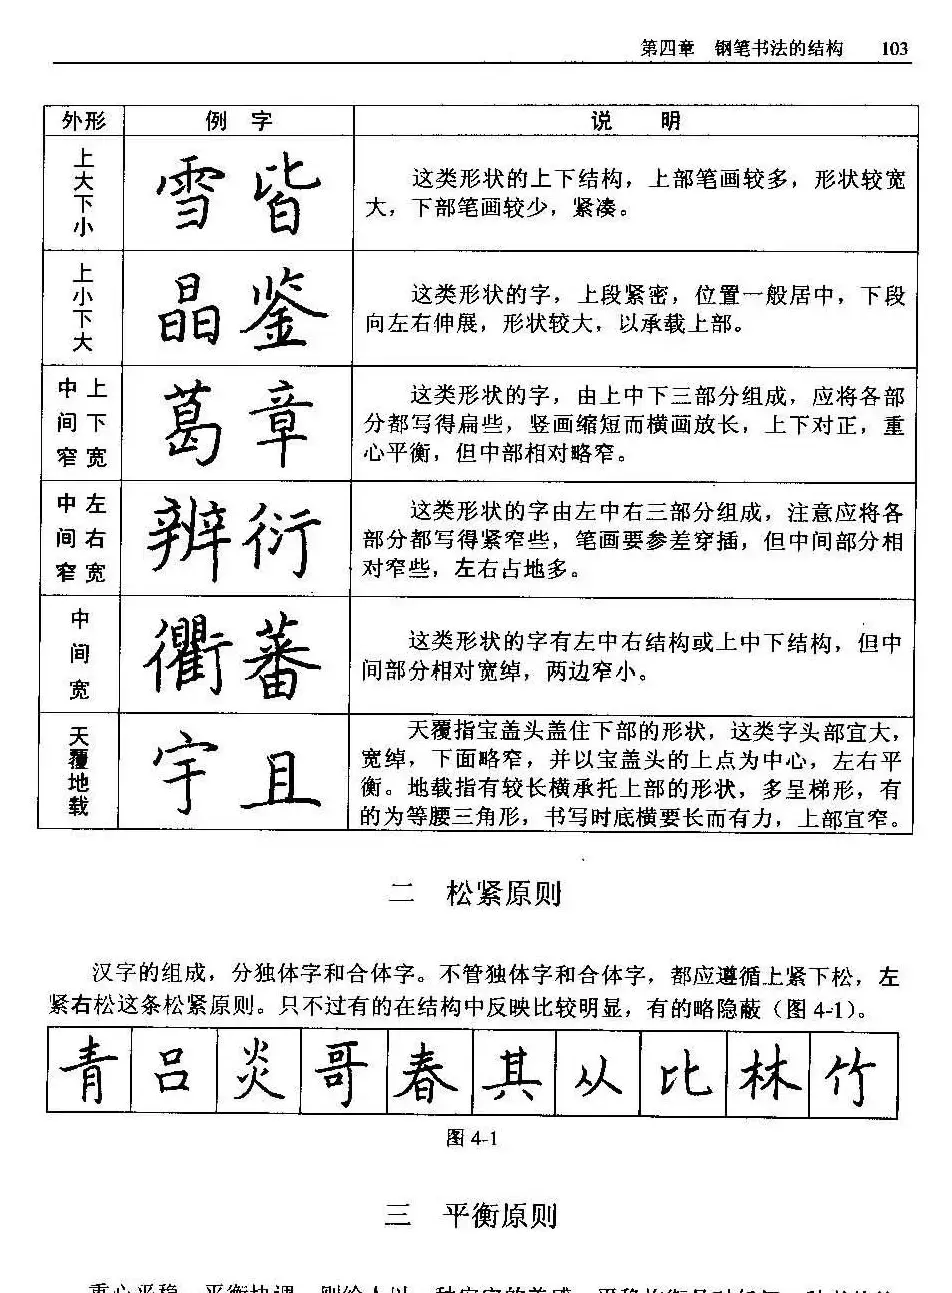 第四章 钢笔书法的结构 103
外形 例 字 说 明
上大下小
雪 皆
这类形状的上下结构，上部笔画较多，形状较宽
大，下部笔画较少，紧凑。
上小下大
晶 鉴
这类形状的字，上段紧密，位置一般居中，下段
向左右伸展，形状较大，以承载上部。
上下宽
中间窄
葛 章
这类形状的字，由上中下三部分组成，应将各部
分都写得扁些，竖画缩短而横画放长，上下对正，重
心平衡，但中部相对略窄。
左右宽
中间窄
辨 衍
这类形状的字由左中右三部分组成，注意应将各
部分都写得紧窄些，笔画要参差穿插，但中间部分相
对窄些，左右占地多。
中间宽
衢 蕃
这类形状的字有左中右结构或上中下结构，但中
间部分相对宽绰，两边窄小。
天覆地载
宇 且
天覆指宝盖头盖住下部的形状，这类字头部宜大，
宽绰，下面略窄，并以宝盖头的上点为中心，左右平
衡。地载指有较长横承托上部的形状，多呈梯形，有
的为等腰三角形，书写时底横要长而有力，上部宜窄。
二 松紧原则
汉字的组成，分独体字和合体字。不管独体字和合体字，都应遵循上紧下松，左
紧右松这条松紧原则。只不过有的在结构中反映比较明显，有的略隐蔽（图 4-1）。
青 吕 炎 哥 春 其 从 比 林 竹
图 4-1
三 平衡原则